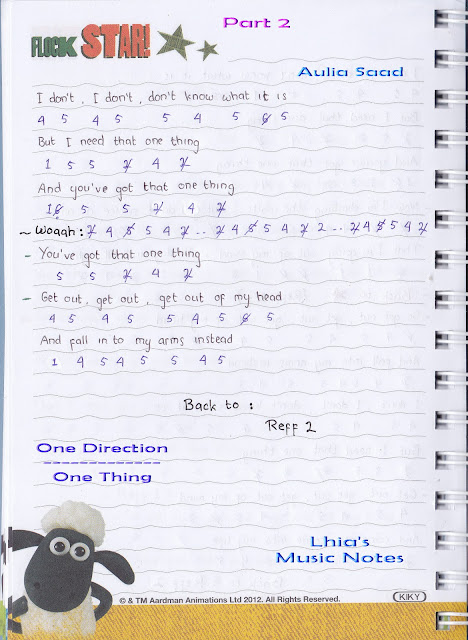 Part 2
FLOCK STAR!
Aulia Saad
I don't, I don't, don't know what it is
4 5 4 5 5 4 5 6̸ 5
But I need that one thing
1 5 5 2̸ 4 2̸
And you've got that one thing
1 6̸ 5 5 2̸ 4 2̸
~ Woaah : 2̸ 4 5̸ 5 4 2̸ .. 2̸ 4 5̸ 5 4 2̸ 2 .. 2̸ 4 5̸ 5 4 2̸
- You've got that one thing
5 5 2̸ 4 2̸
- Get out, get out, get out of my head
4 5 4 5 5 4 5 6̸ 5
And fall in to my arms instead
1 4 5 4 5 5 4 5
Back to :
Reff 2
One Direction
-------------
One Thing
Lhia's
Music Notes
© & TM Aardman Animations Ltd 2012. All Rights Reserved.
KIKY